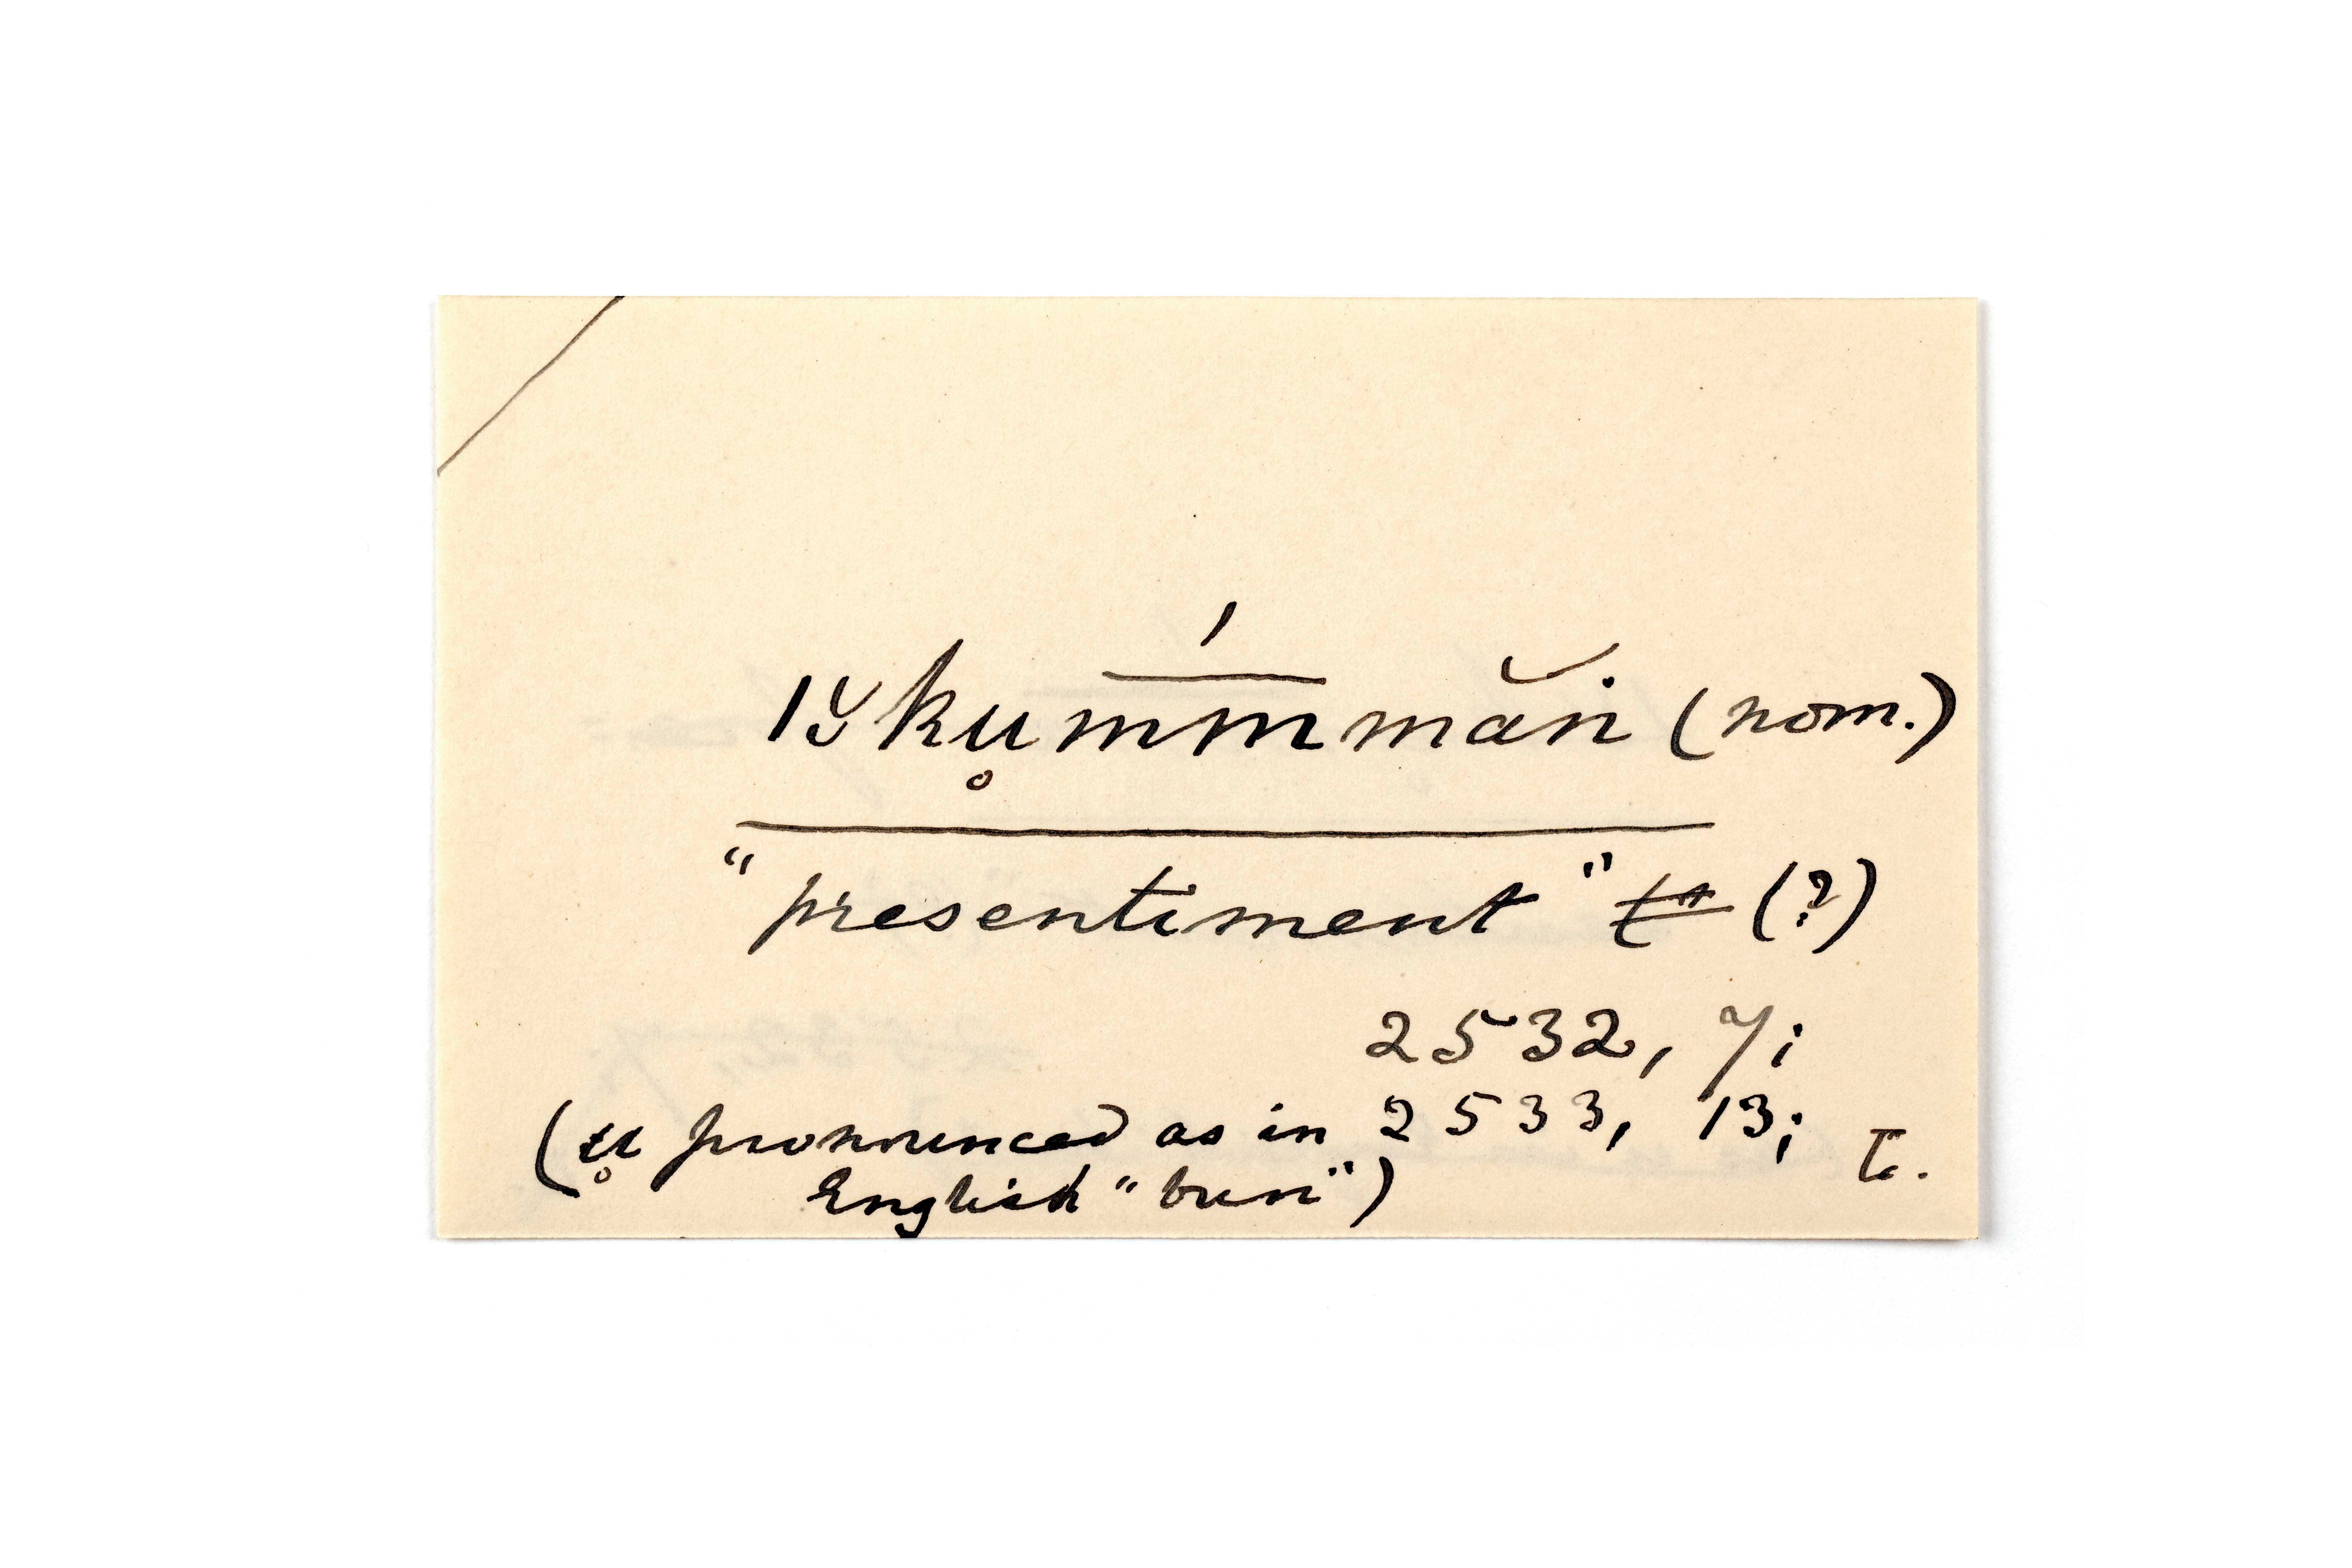 ıš̯ku̥m̅́m̅măṅ (nom.)
"presentiment" (?)
2532, 7;
2533, 13; T.
(u̥ pronounced as in
English "bun")